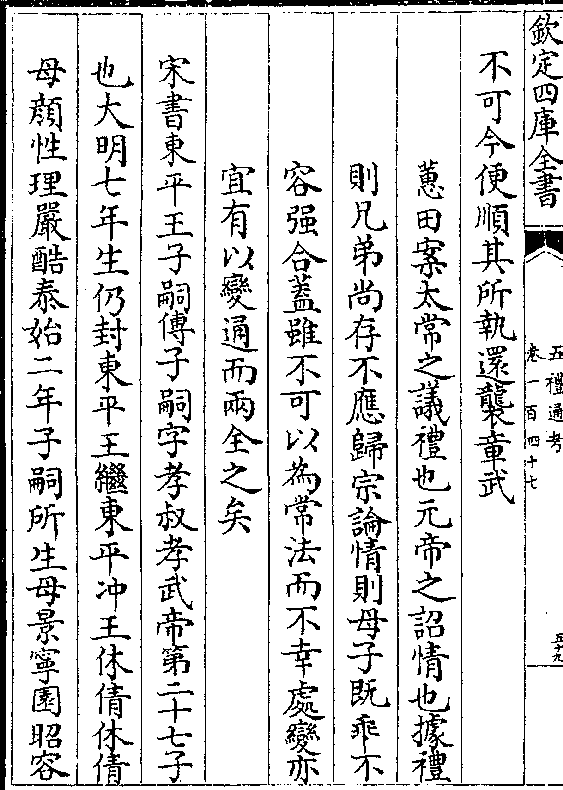 欽定四庫全書
五禮通考
卷一百四十七
五十九
不可今便順其所執還襲章武
蕙田案太常之議禮也元帝之詔情也據禮
則兄弟尚存不應歸宗論情則母子既乖不
容强合蓋雖不可以為常法而不幸處變亦
宜有以變通而兩全之矣
宋書東平王子嗣傳子嗣字孝叔孝武帝第二十七子
也大明七年生仍封東平王繼東平冲王休倩休倩
母顔性理嚴酷泰始二年子嗣所生母景寧園昭容